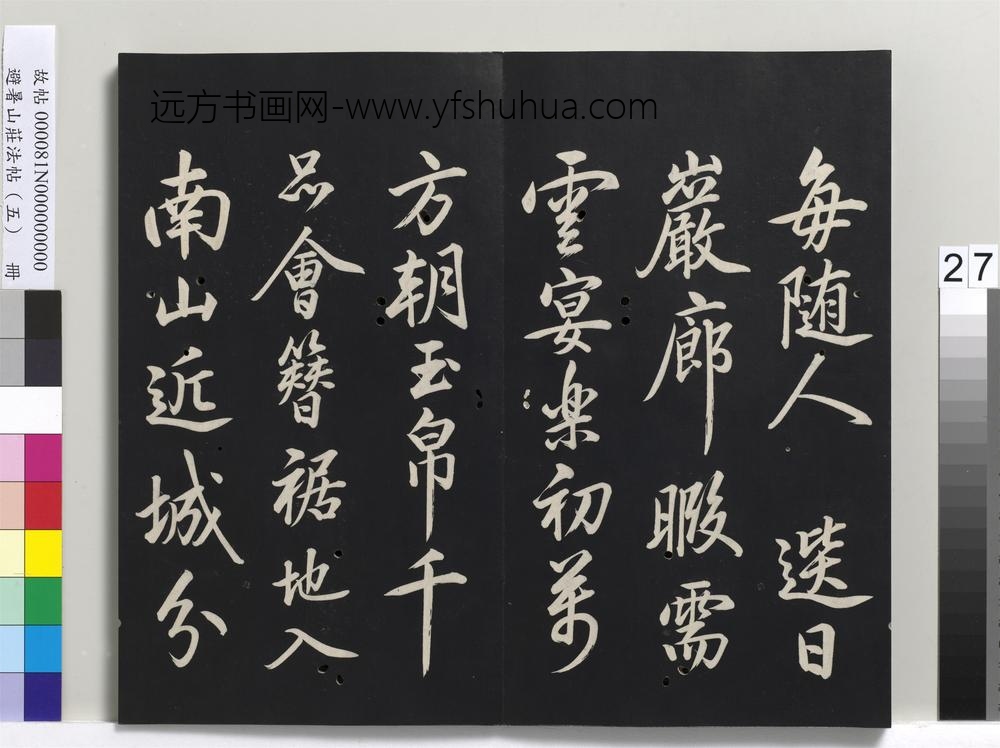 每随人 選日
巖廊暇需
雲宴楽初萬
方朝玉帛千
品會簪裾地入
南山近城分
远方书画网-www.yfshuhua.com
故帖 000081N000000000
避暑山莊法帖（五） 冊
27